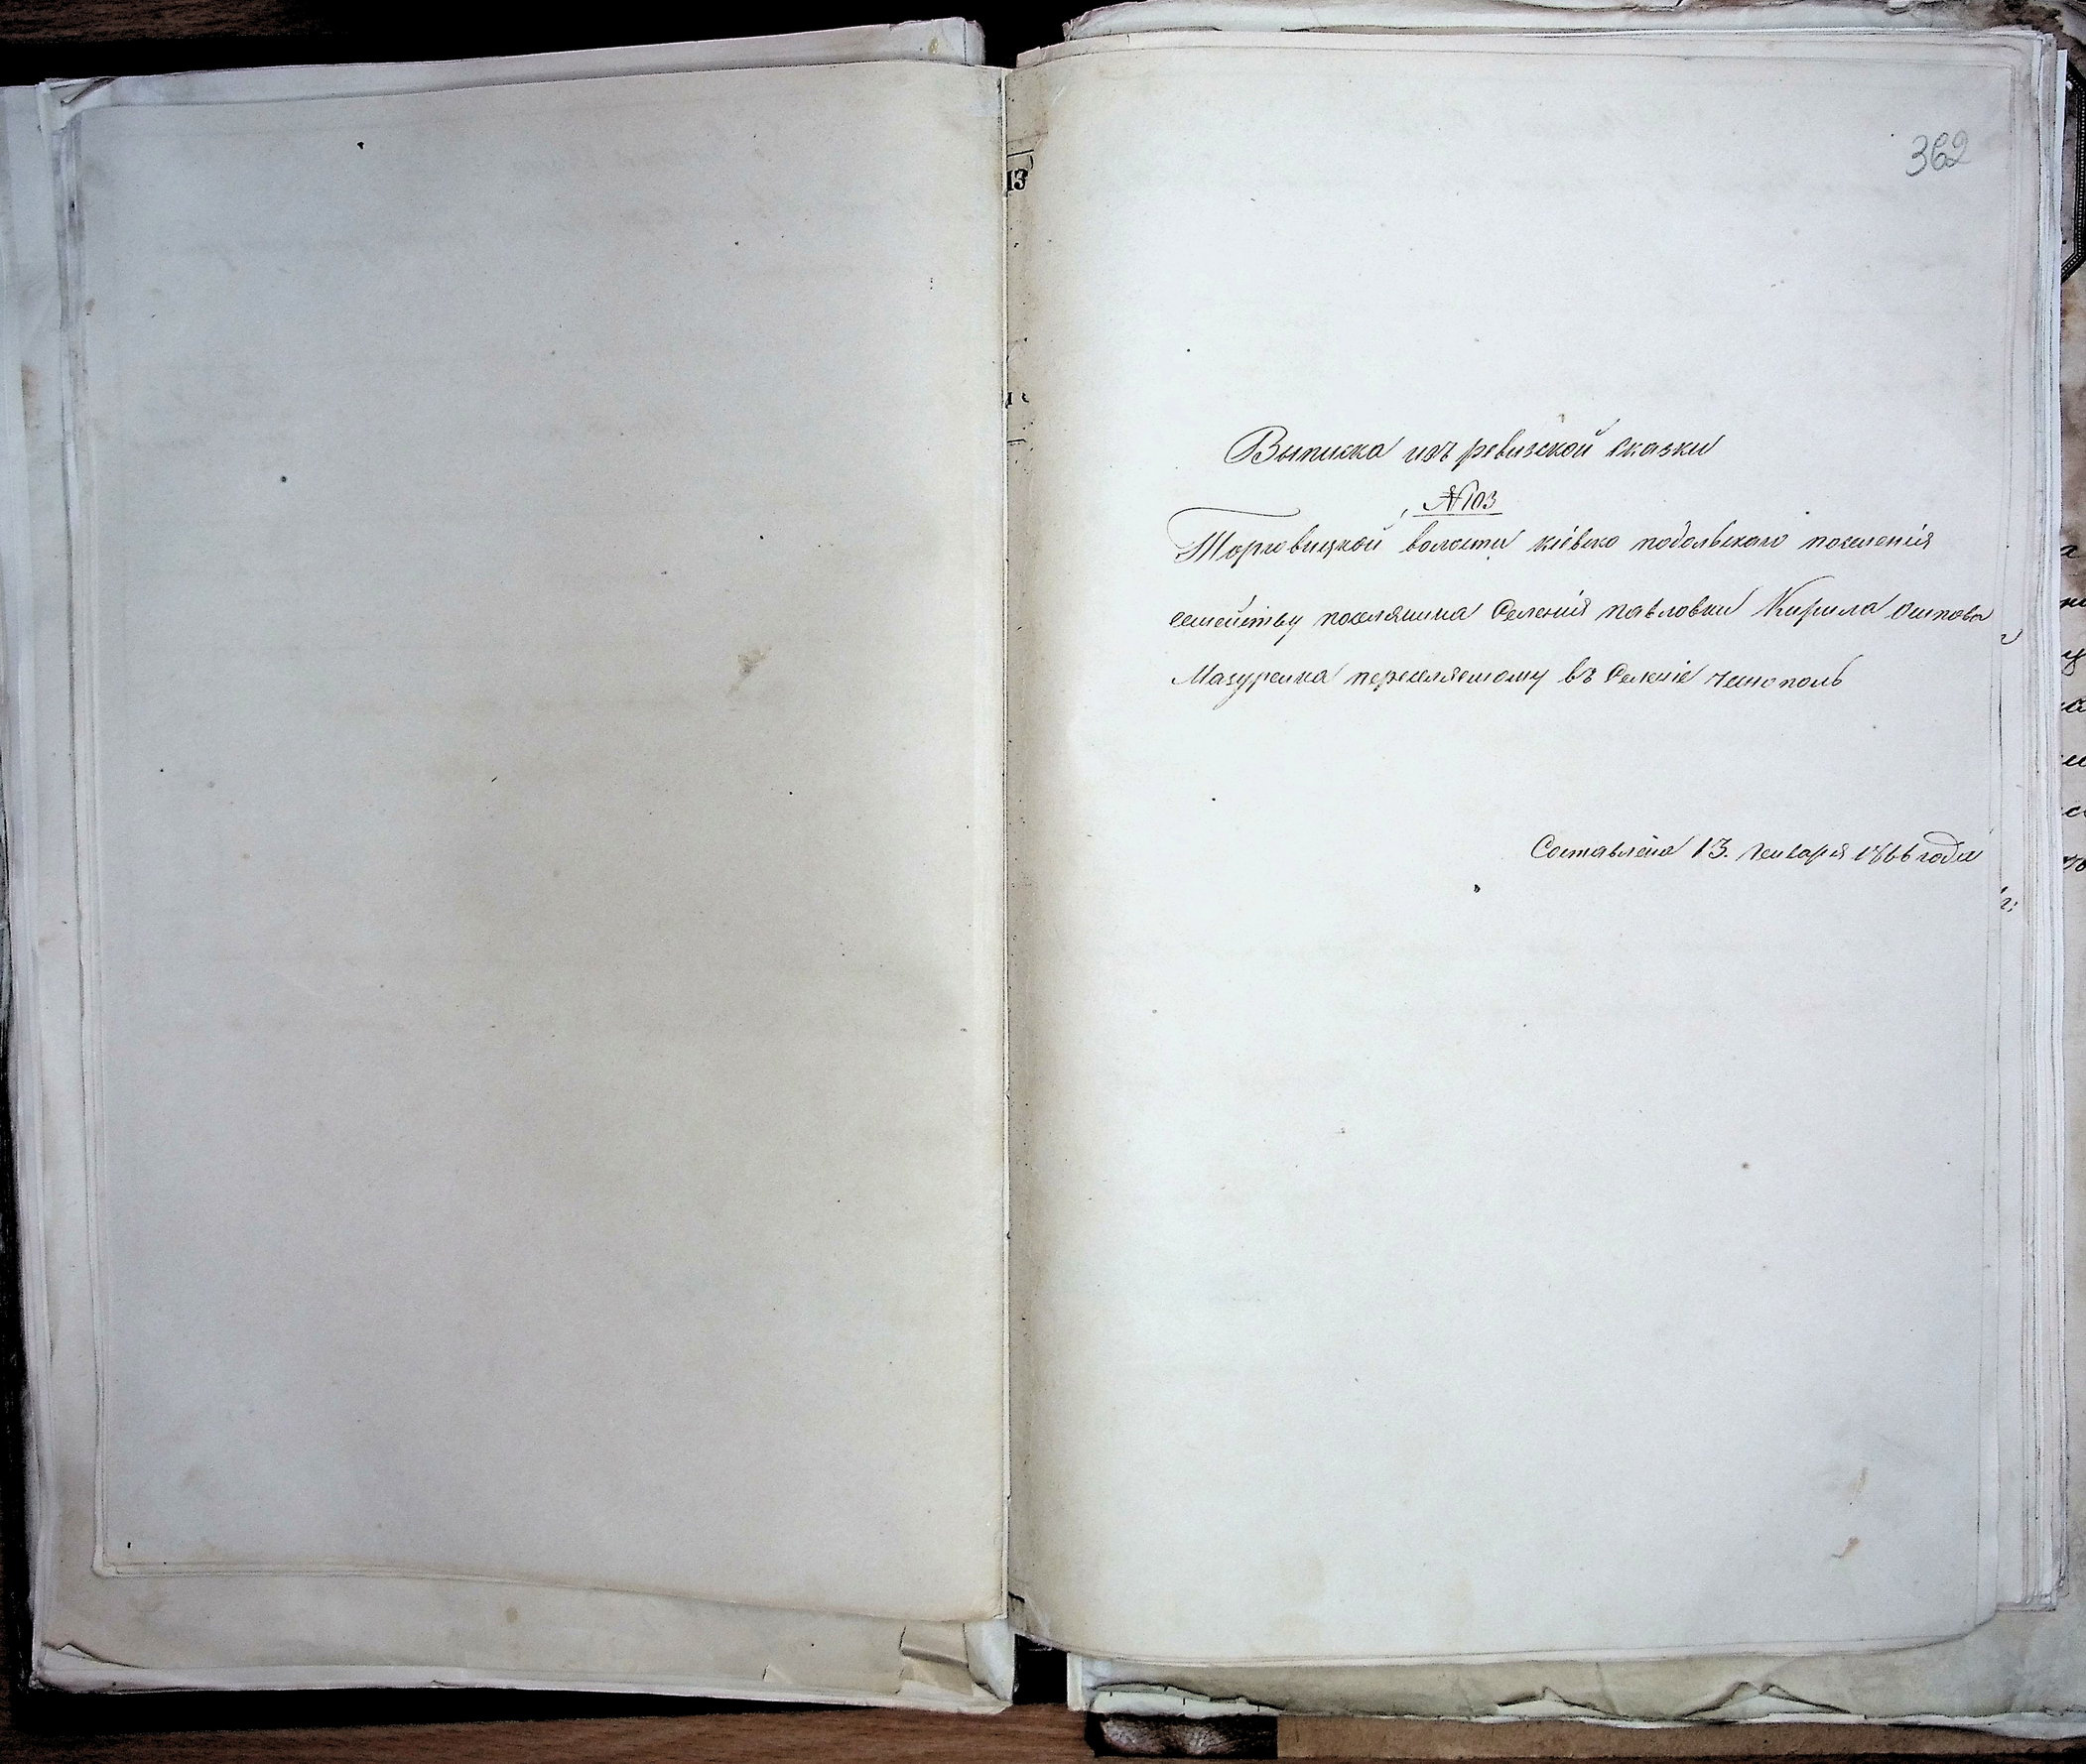 362
Выписка изъ ревизской сказки
№ 103
Торговицкой волости кіевско подольскаго поселенія
семейству поселянина Селенія павловки Кирила Осипова
Мазуренка переселяемому въ Селеніе
Составлена 13. Января 1866 года